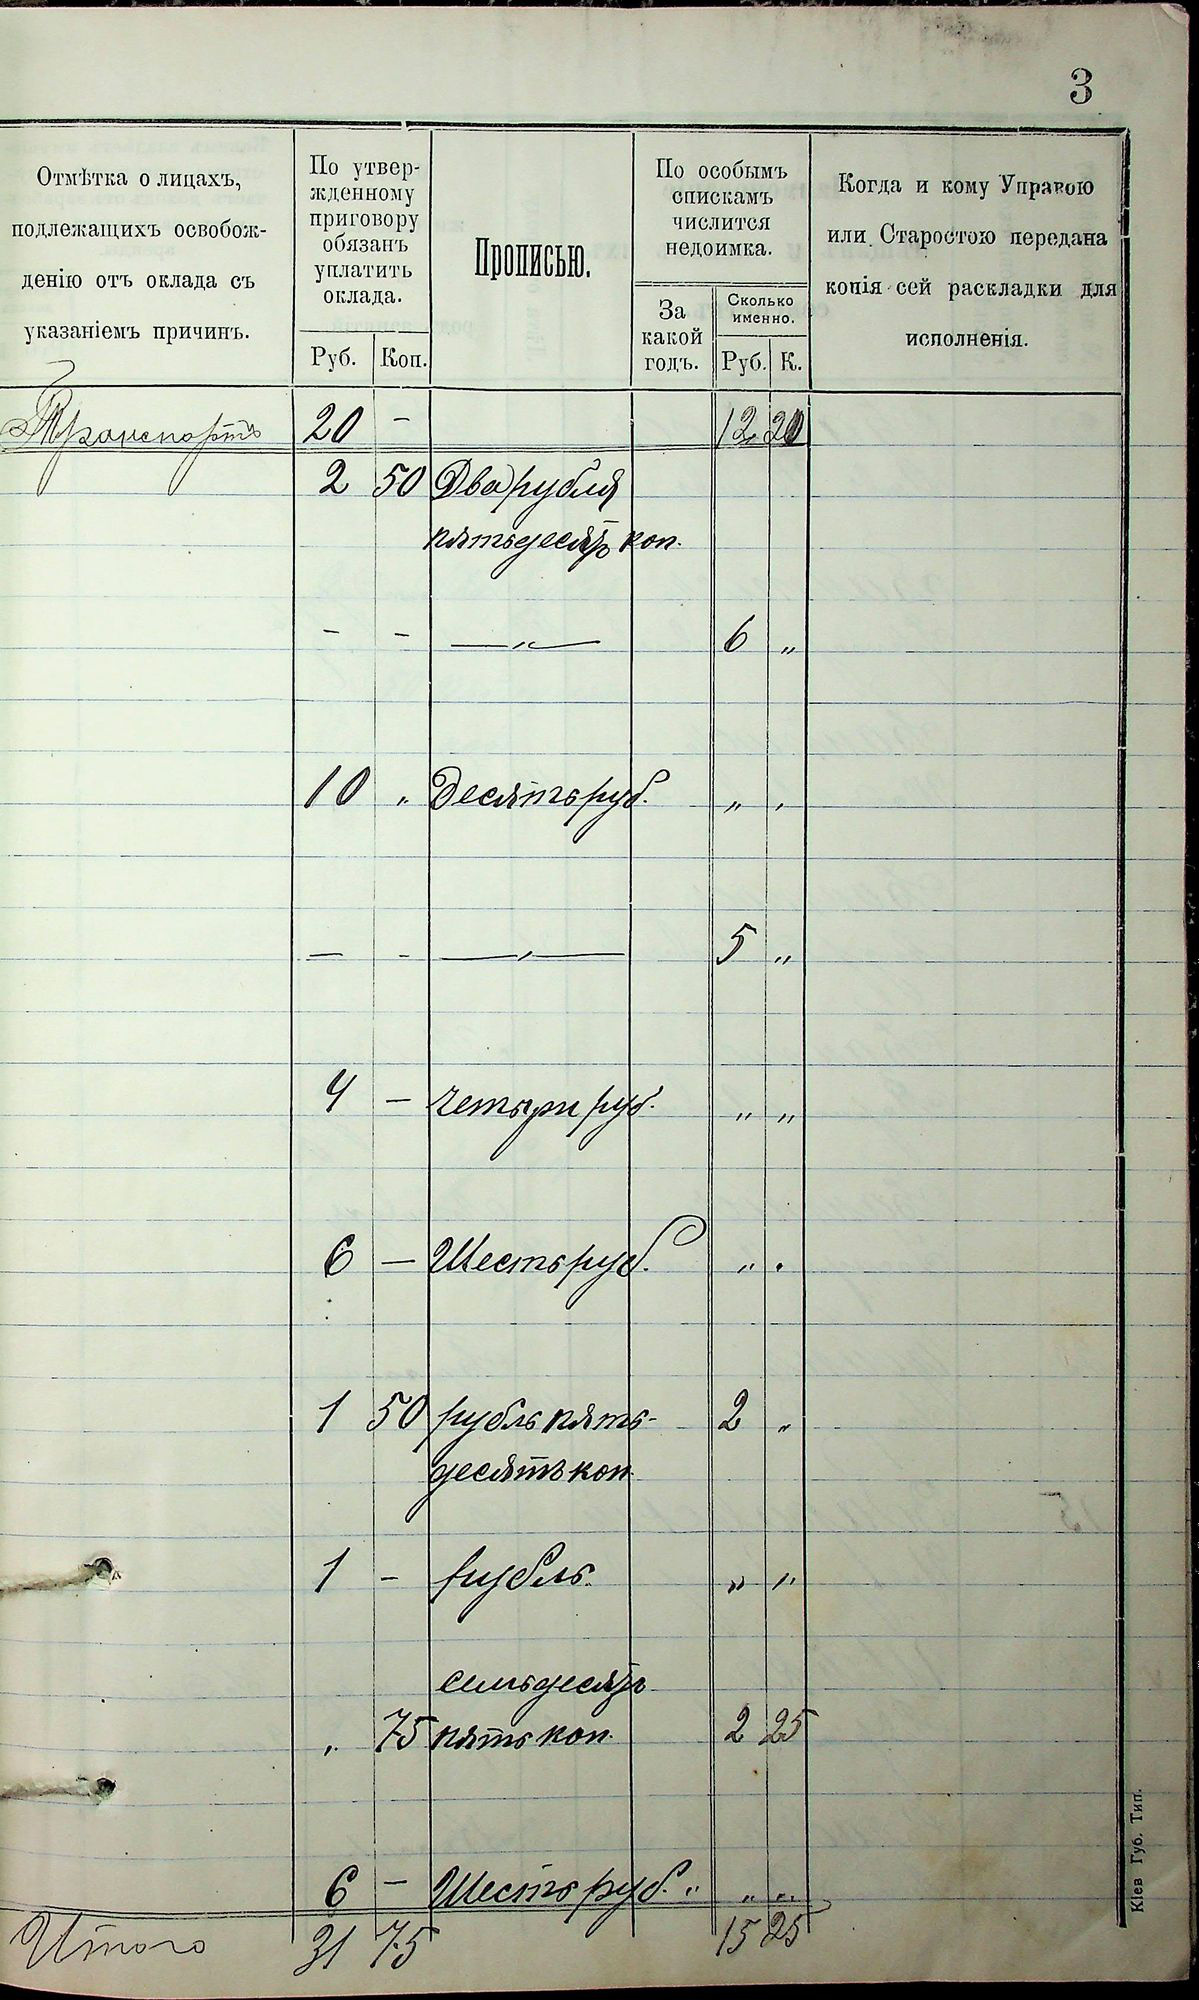 3
Отмѣтка о лицахъ,
подлежащихъ освобож-
денію отъ оклада съ
указаніемъ причинъ.
По утвер-
жденному
приговору
обязанъ
уплатить
оклада.
Руб. Коп.
Прописью.
По особымъ
спискамъ
числится
недоимка.
За
какой
годъ.
Сколько
именно.
Руб. К.
Когда и кому Управою
или Старостою передана
копія сей раскладки для
исполненія.
Транспортъ 20 - 12 20
2 50 Два рубля
пятьдесятъ коп.
- - —„— 6 „
10 „ Десять руб. „ „
— - —„— 5 „
4 — Четыри руб. „ „
6 — Шесть руб. „ „
1 50 рубль пять- 2 „
десятъ коп.
1 - рубль. „ „
семьдесятъ
„ 75 пять коп. 2 25
6 — Шесть руб. „ „ „
Итого 31 75 15 25
Кіев Губ. Тип.